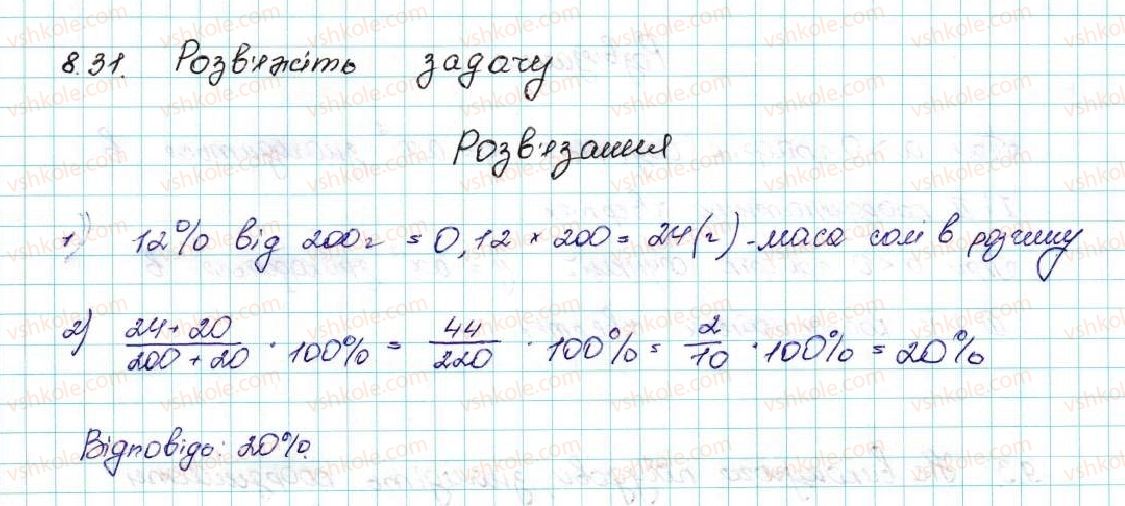 8.31. Розв'яжіть задачу
Розв'язання
1) 12% від 200г = 0,12 × 200 = 24 (г) - маса солі в розчину
2) \frac{24+20}{200+20} · 100% = \frac{44}{220} · 100% = \frac{2}{10} · 100% = 20%
Відповідь: 20%.